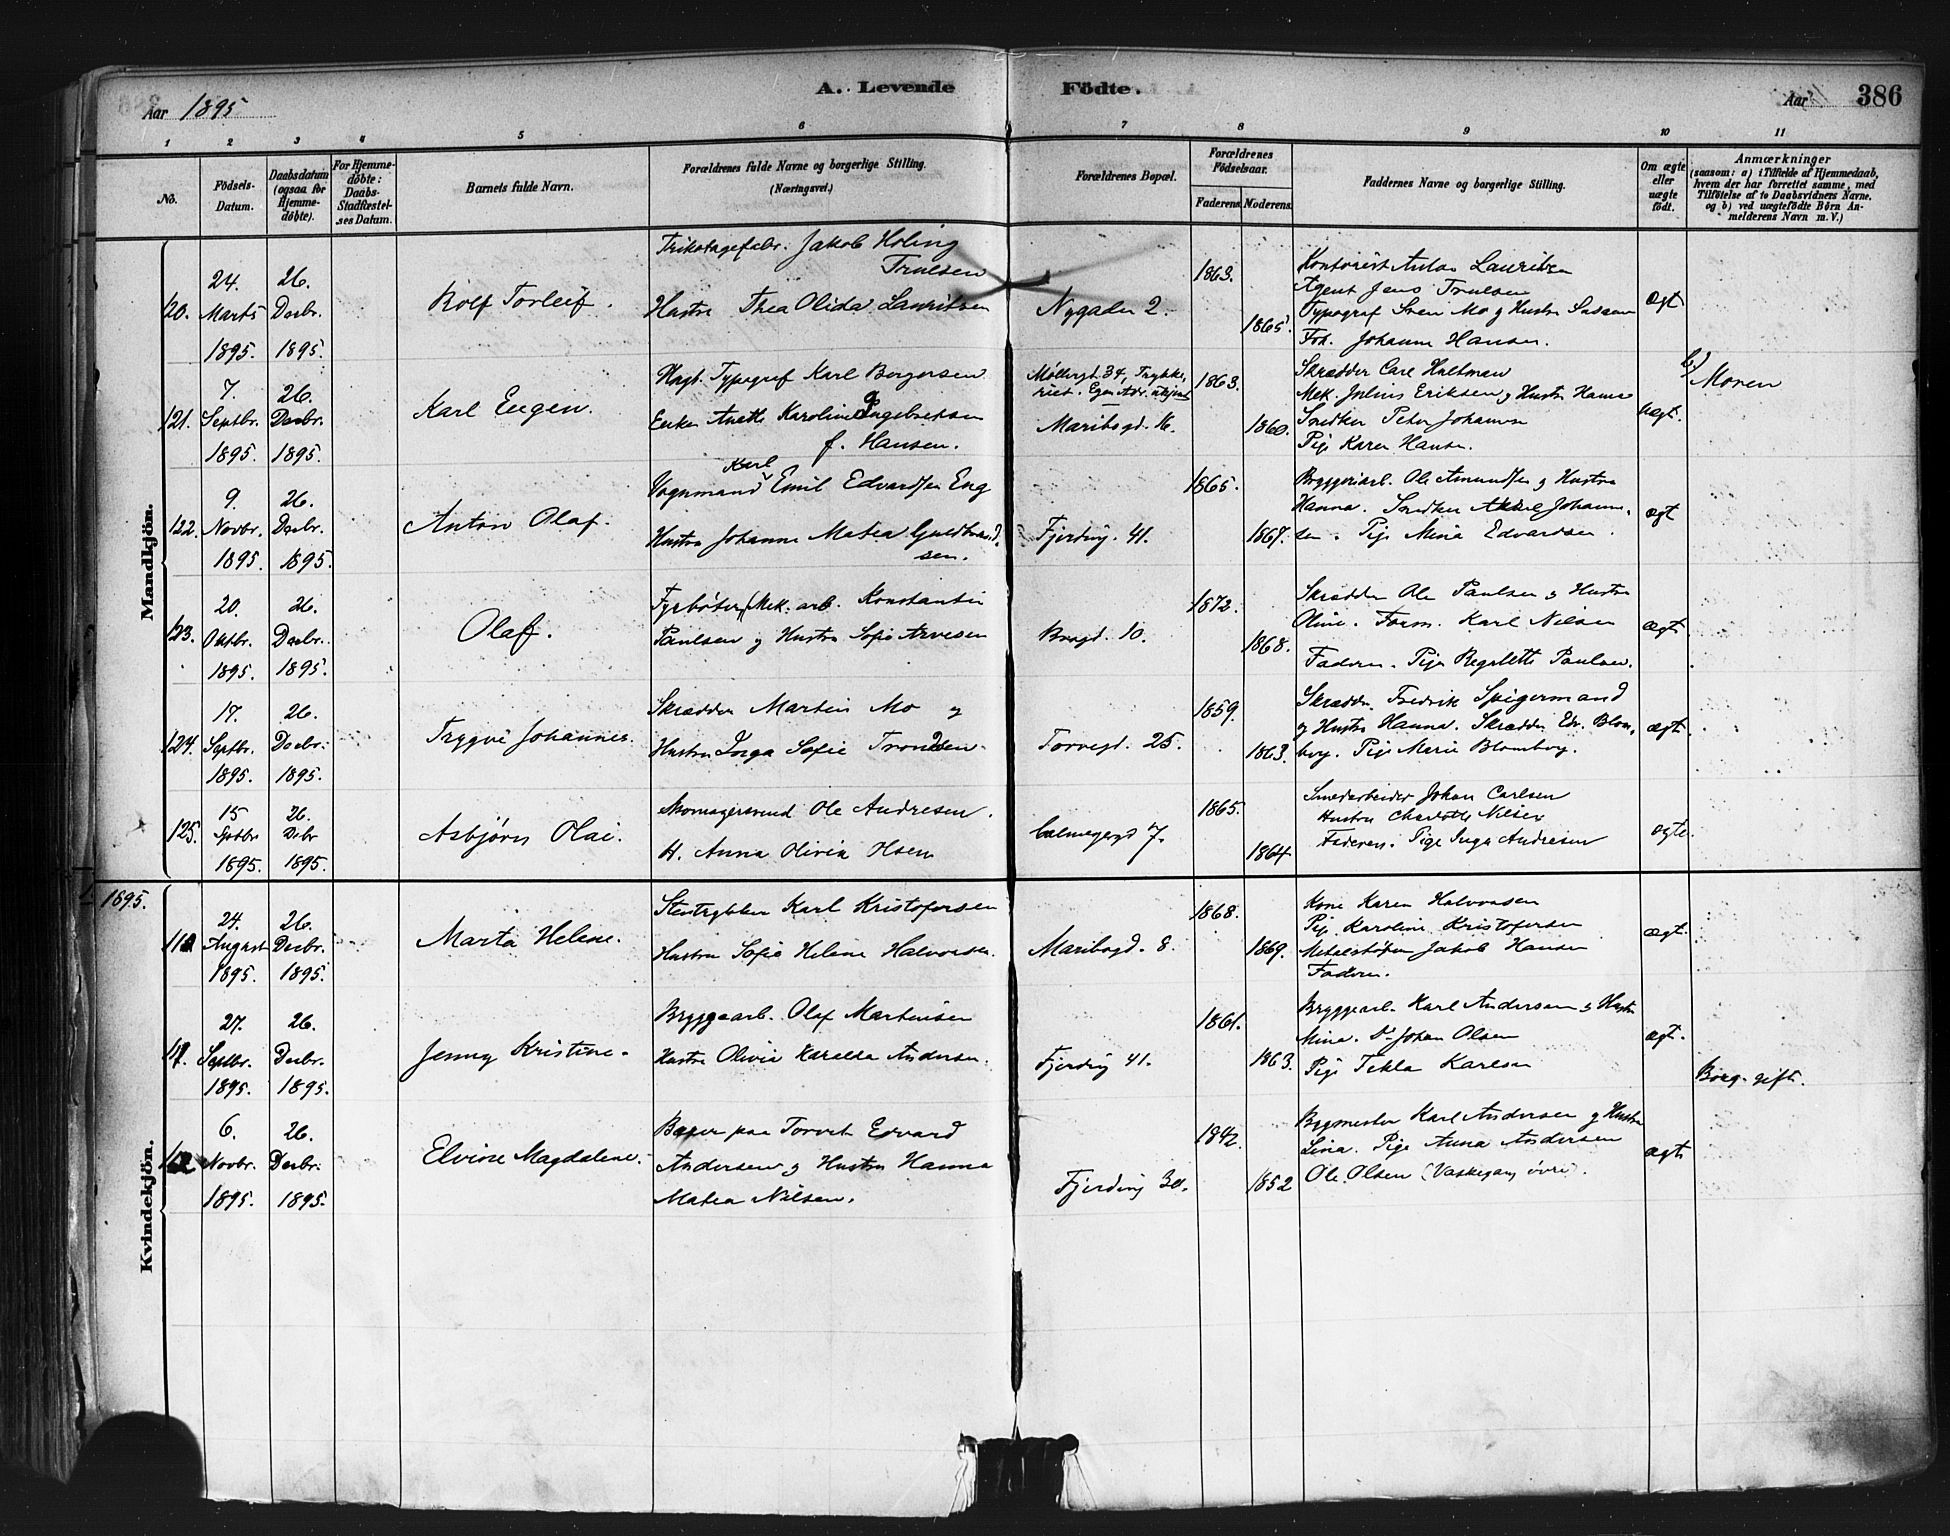 A. Levende Födte.
Aar 1895
Aar
386
1 2 3 4 5 6 7 8 9 10 11
No.
Födsels-Datum.
Daabsdatum (ogsaa for Hjemme-döbte).
For Hjemme-döbte: Daabs-Stadfæstel-ses Datum.
Barnets fulde Navn.
Forældrenes fulde Navne og borgerlige Stilling. (Næringsvei.)
Forældrenes Bopæl.
Forældrenes Födselsaar.
Faderens. Moderens.
Faddernes Navne og borgerlige Stilling.
Om ægte eller uægte födt.
Anmærkninger
(saasom: a) i Tilfælde af Hjemmedaab,
hvem der har forrettet samme, med
Tilföielse af to Daabsvidners Navne,
og b) ved uægtefödte Börn An-
melderens Navn m. V.)
Mandkjön.
120.
24. Marts 1895.
26. Decbr. 1895.
Rolf Torleif.
Trikotagefabr. Jakob Holing
Trulsen
Hustru Thea Olida Lauritsen
Nygaden 2.
1863.
1865.
Kontorist Anton Lauritzen
Agent Jens Trulsen
Typograf Sven Mo og Hustru
Frk. Johanne Hansen.
ægt
121.
7. Septbr. 1895.
26. Decbr. 1895.
Karl Eugen.
Ungk. Typograf Karl Borgersen
Enke Anette Karoline Ingebretsen
f. Hansen.
Møllergt. 34, Trykke-
riet. Egen Adr. ukjent
Maribogd. 16.
1863.
1860.
Skrædder Carl Hultman
Mek. Julius Eriksen og Hustru Hanna
Snedker Peter Johansen
Pige Karen Hansen.
uægt.
b) Moren
122.
9. Novbr. 1895.
26. Decbr. 1895.
Anton Olaf.
Karl
Vognmand Emil Edvardsen Eng
Hustru Johanne Matea Guldbrand-
sen.
Fjerding. 41.
1865.
1867.
Bryggeriarb. Ole Amundsen og Hustru
Hanna. Snedker Johann-
sen. Pige Mina Edvardsen.
ægt
123.
20. Oktbr. 1895.
26. Decbr. 1895.
Olaf.
Fyrbøter (Mek. arb. Konstantin
Paulsen og Hustru Sofie Arvesen
Brugd. 10.
1872.
1868.
Skrædder Ole Paulsen og Hustru
Oline. Form. Karl Nilsen
Faderen. Pige Regelette Paulsen.
ægt.
124.
17. Septbr. 1895.
26. Decbr. 1895.
Trygve Johannes.
Skrædder Martin Mo og
Hustru Inga Sofie Trondsen.
Torvegd. 25.
1859.
1863.
Skrædder Fredrik Spigermand
og Hustru Hanna. Skrædder Edv. Blom-
berg. Pige Marie Blomberg.
ægt.
125.
15 Septbr. 1895.
26. Decbr 1895.
Asbjörn Olai.
Skomagersvend Ole Andresen.
H. Anna Olivia Olsen
Calmeyergd 7.
1865.
1864
Smedarbeider Johan Carlsen
Hustru Charlotte Nilsen
Faderen. Pige Inga Andresen
ægte.
Kvindekjön.
1895.
110
24. August 1895.
26. Decbr. 1895.
Marta Helene.
Stentrykker Karl Kristofersen
Hustru Sofie Helene Halvorsen.
Maribogd. 8.
1868.
1869.
Kone Karen Halvorsen
Pige Karoline Kristofersen
Metalstøber Jakob Hansen
Faderen.
ægt.
111.
27. Septbr. 1895.
26. Decbr. 1895.
Jenny Kristine.
Bryggearb. Olaf Martinsen
Hustru Olivia Karelsa Andersen.
Fjerding 41.
1861.
1863.
Bryggearb. Karl Andersen og Hustru
Mina. Do Johan Olsen
Pige Tekla Karlsen
ægt.
Borg. gift.
112
6. Novbr. 1895.
26. Decbr. 1895.
Elvine Magdalene.
Bager paa Torvet Edvard
Andersen og Hustru Hanna
Matea Nilsen.
Fjerding 30.
1842.
1852
Bygmester Karl Andersen og Hustru
Lina. Pige Anna Andersen
Ole Olsen (Vaskegang övre).
ægt.